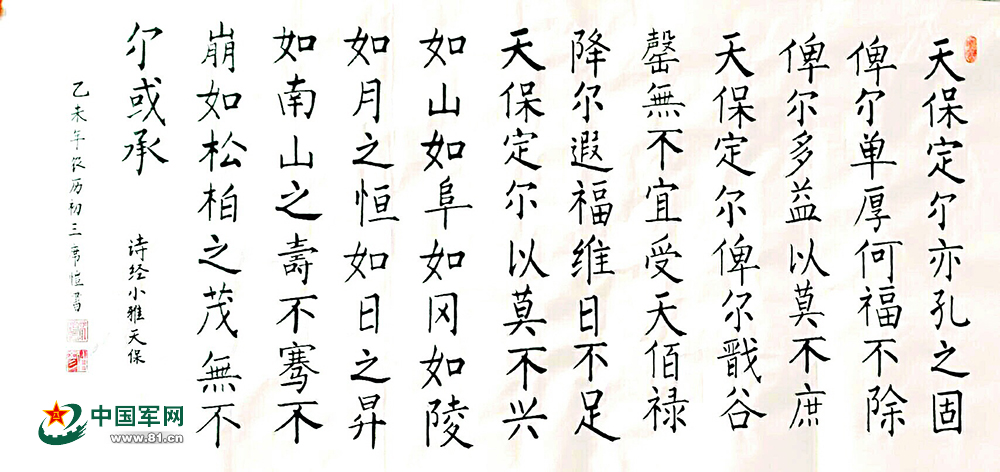 天保定尔亦孔之固
俾尔单厚何福不除
俾尔多益以莫不庶
天保定尔俾尔戩谷
罄無不宜受天佰禄
降尔遐福维日不足
天保定尔以莫不兴
如山如阜如冈如陵
如月之恒如日之昇
如南山之壽不骞不
崩如松柏之茂無不
尔或承
诗经小雅天保
乙未年农历初三
中国军网
www.81.cn